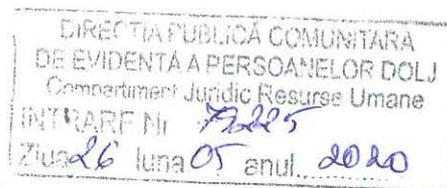 DIRECTIA PUBLICĂ COMUNITARA
DE EVIDENTA A PERSOANELOR DOLJ
Compartiment Juridic Resurse Umane
INTRARE Nr 79225
Ziua 26 luna 05 anul 2020